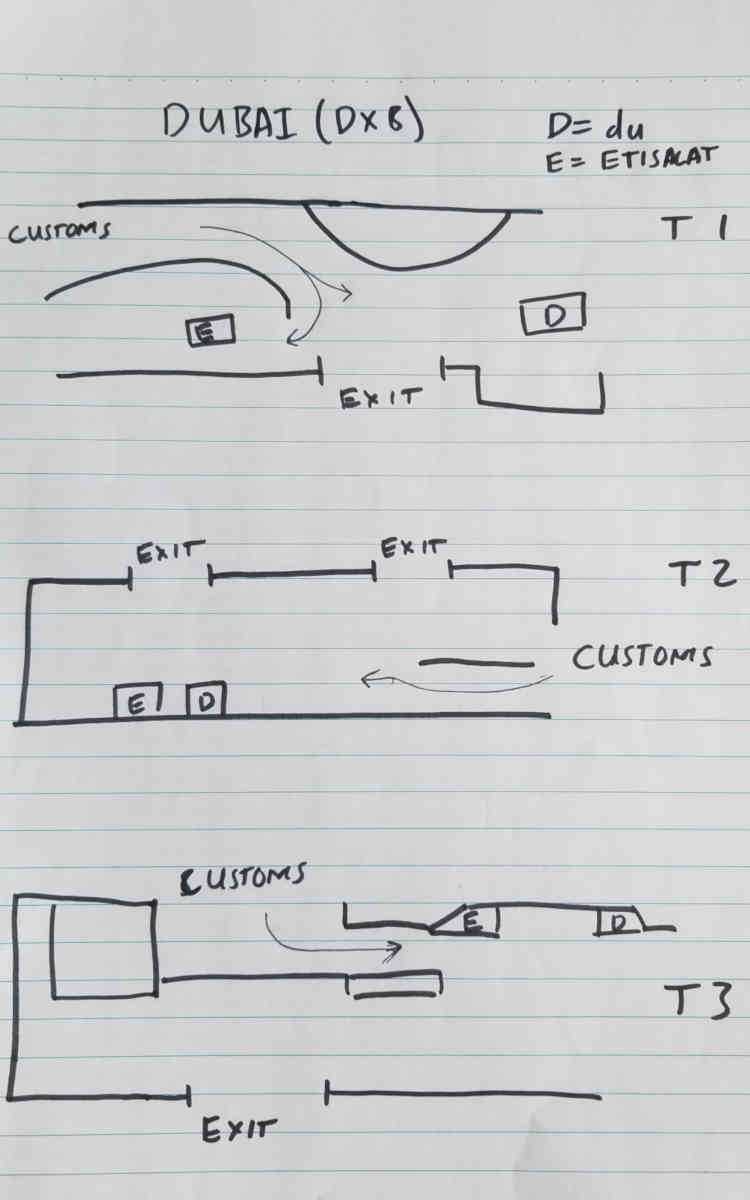 DUBAI (DXB)
D= du
E= ETISALAT
T1
CUSTOMS
E
D
EXIT
EXIT
EXIT
T2
CUSTOMS
E
D
CUSTOMS
E
D
T3
EXIT